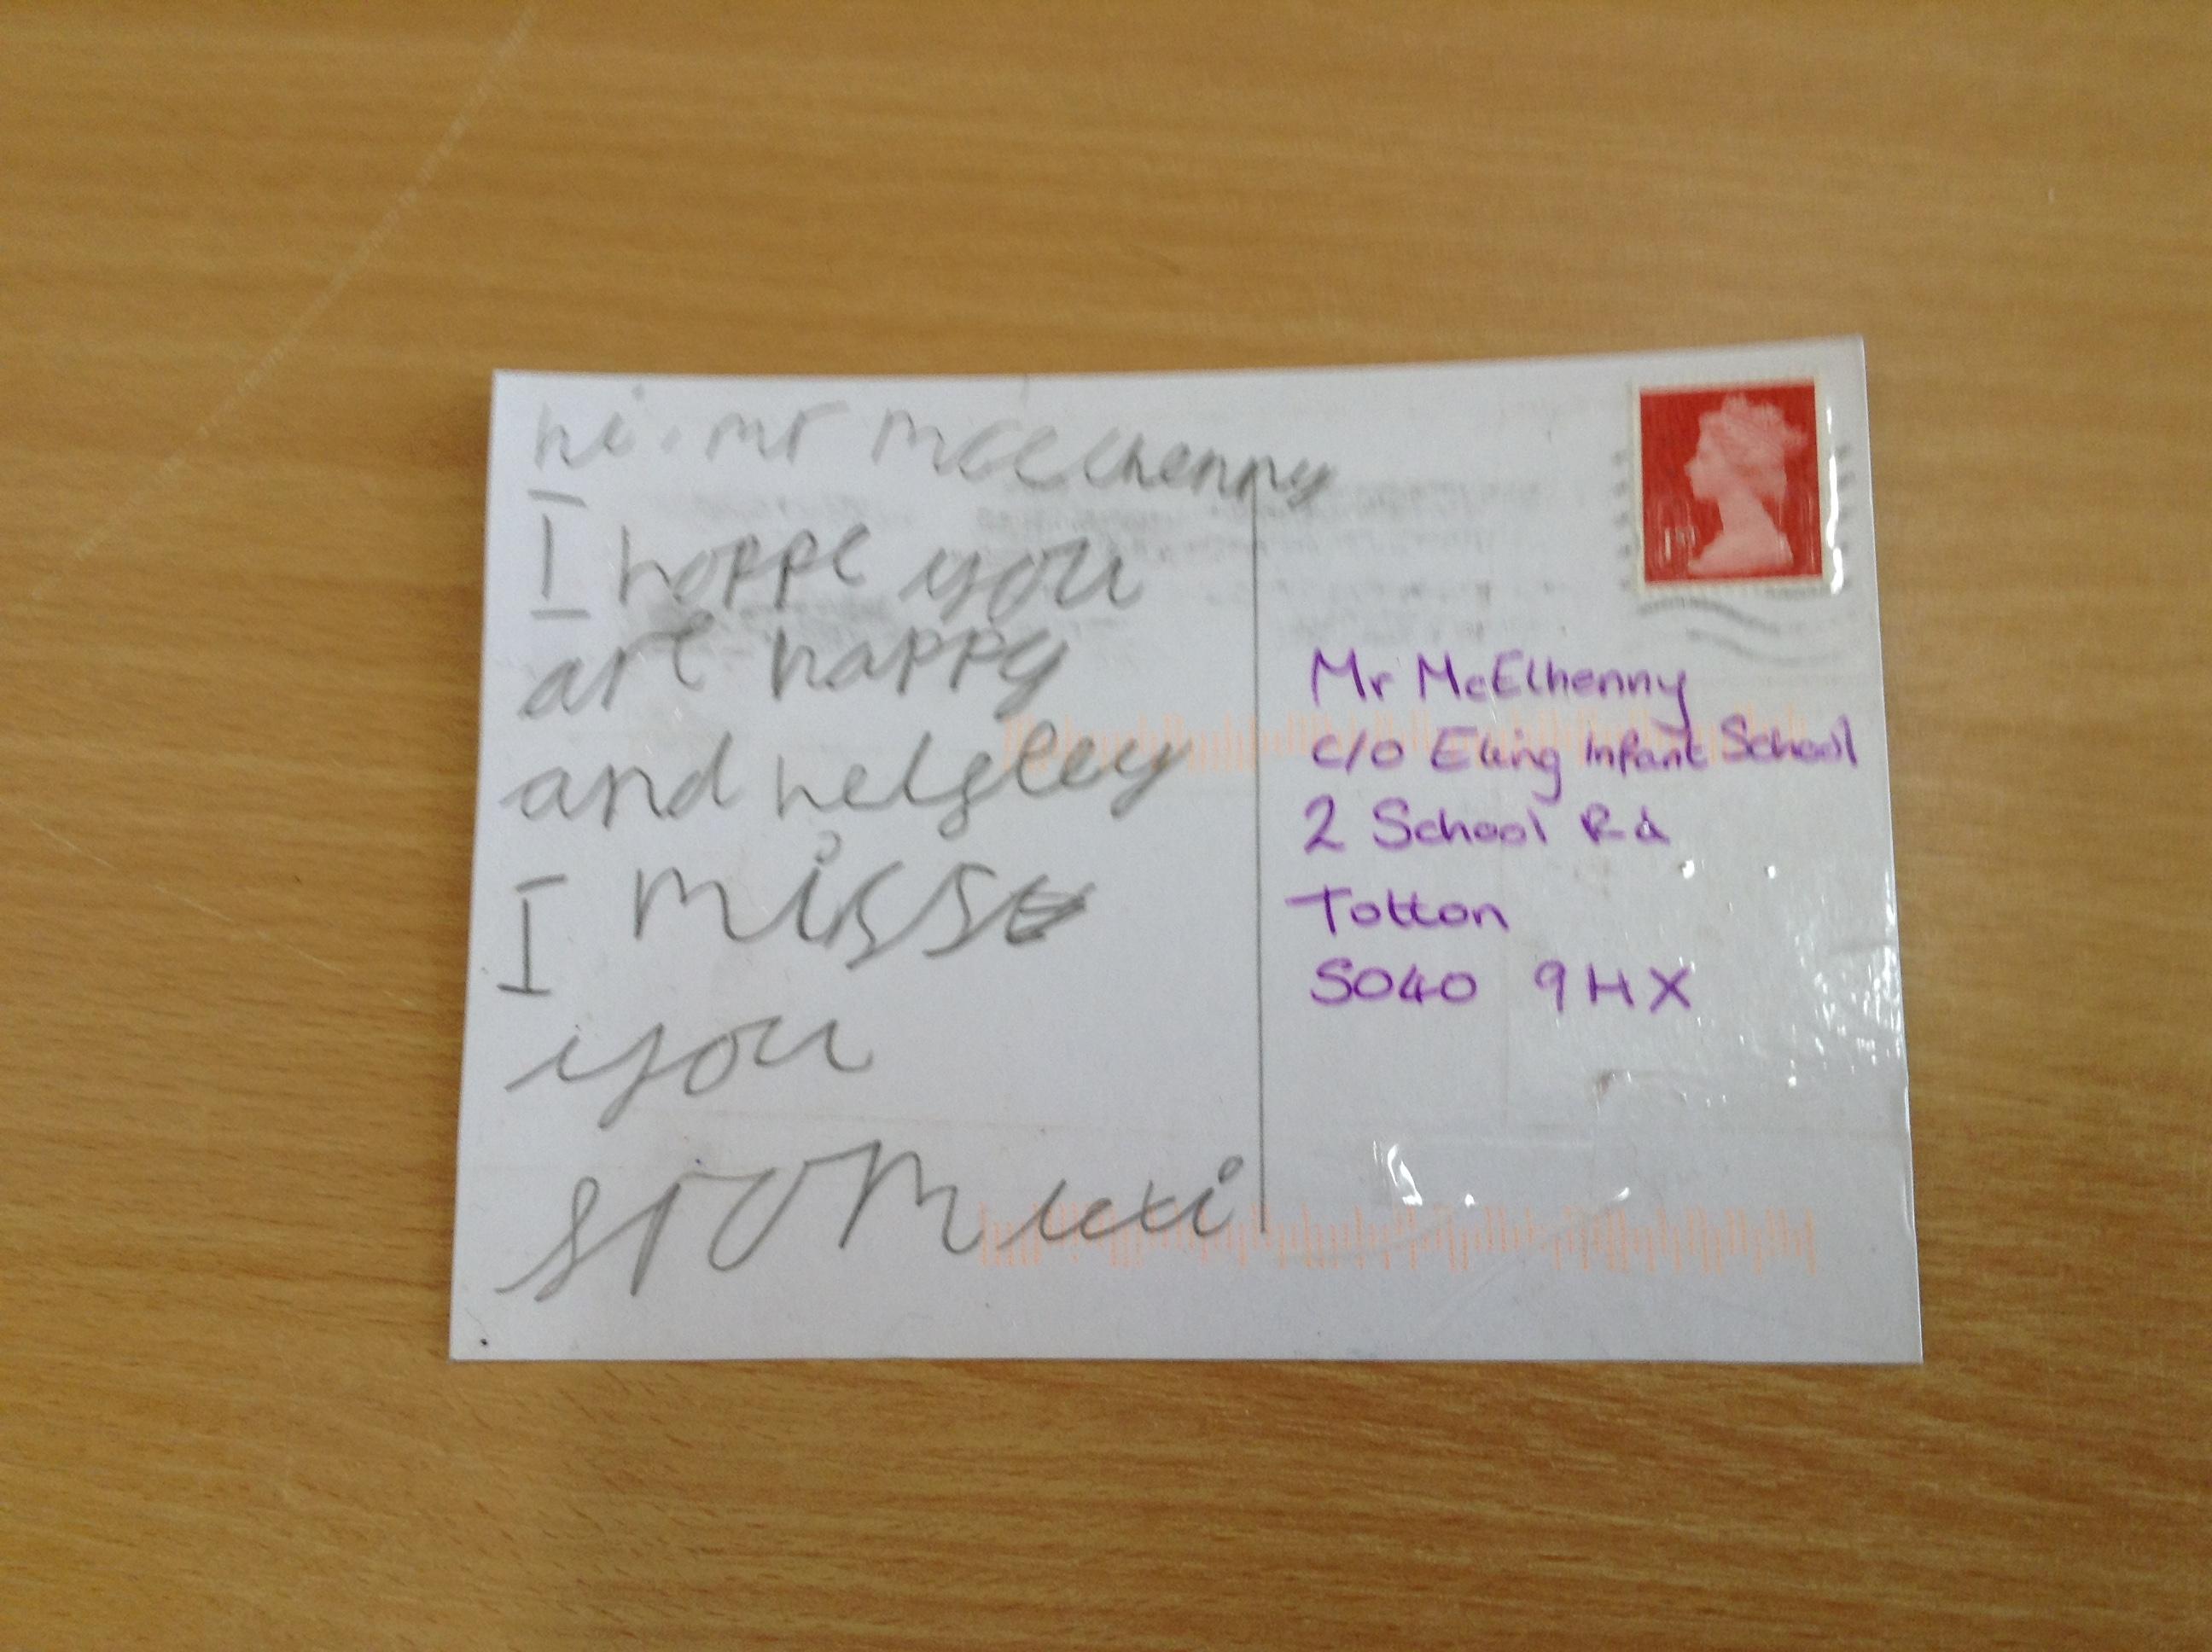 hi. mr mcelhenny
I hoppe you
are happy
and helgley
I miss
you
from lexi
1st
Mr McElhenny
c/o Eling Infant School
2 School Rd
Totton
SO40 9HX